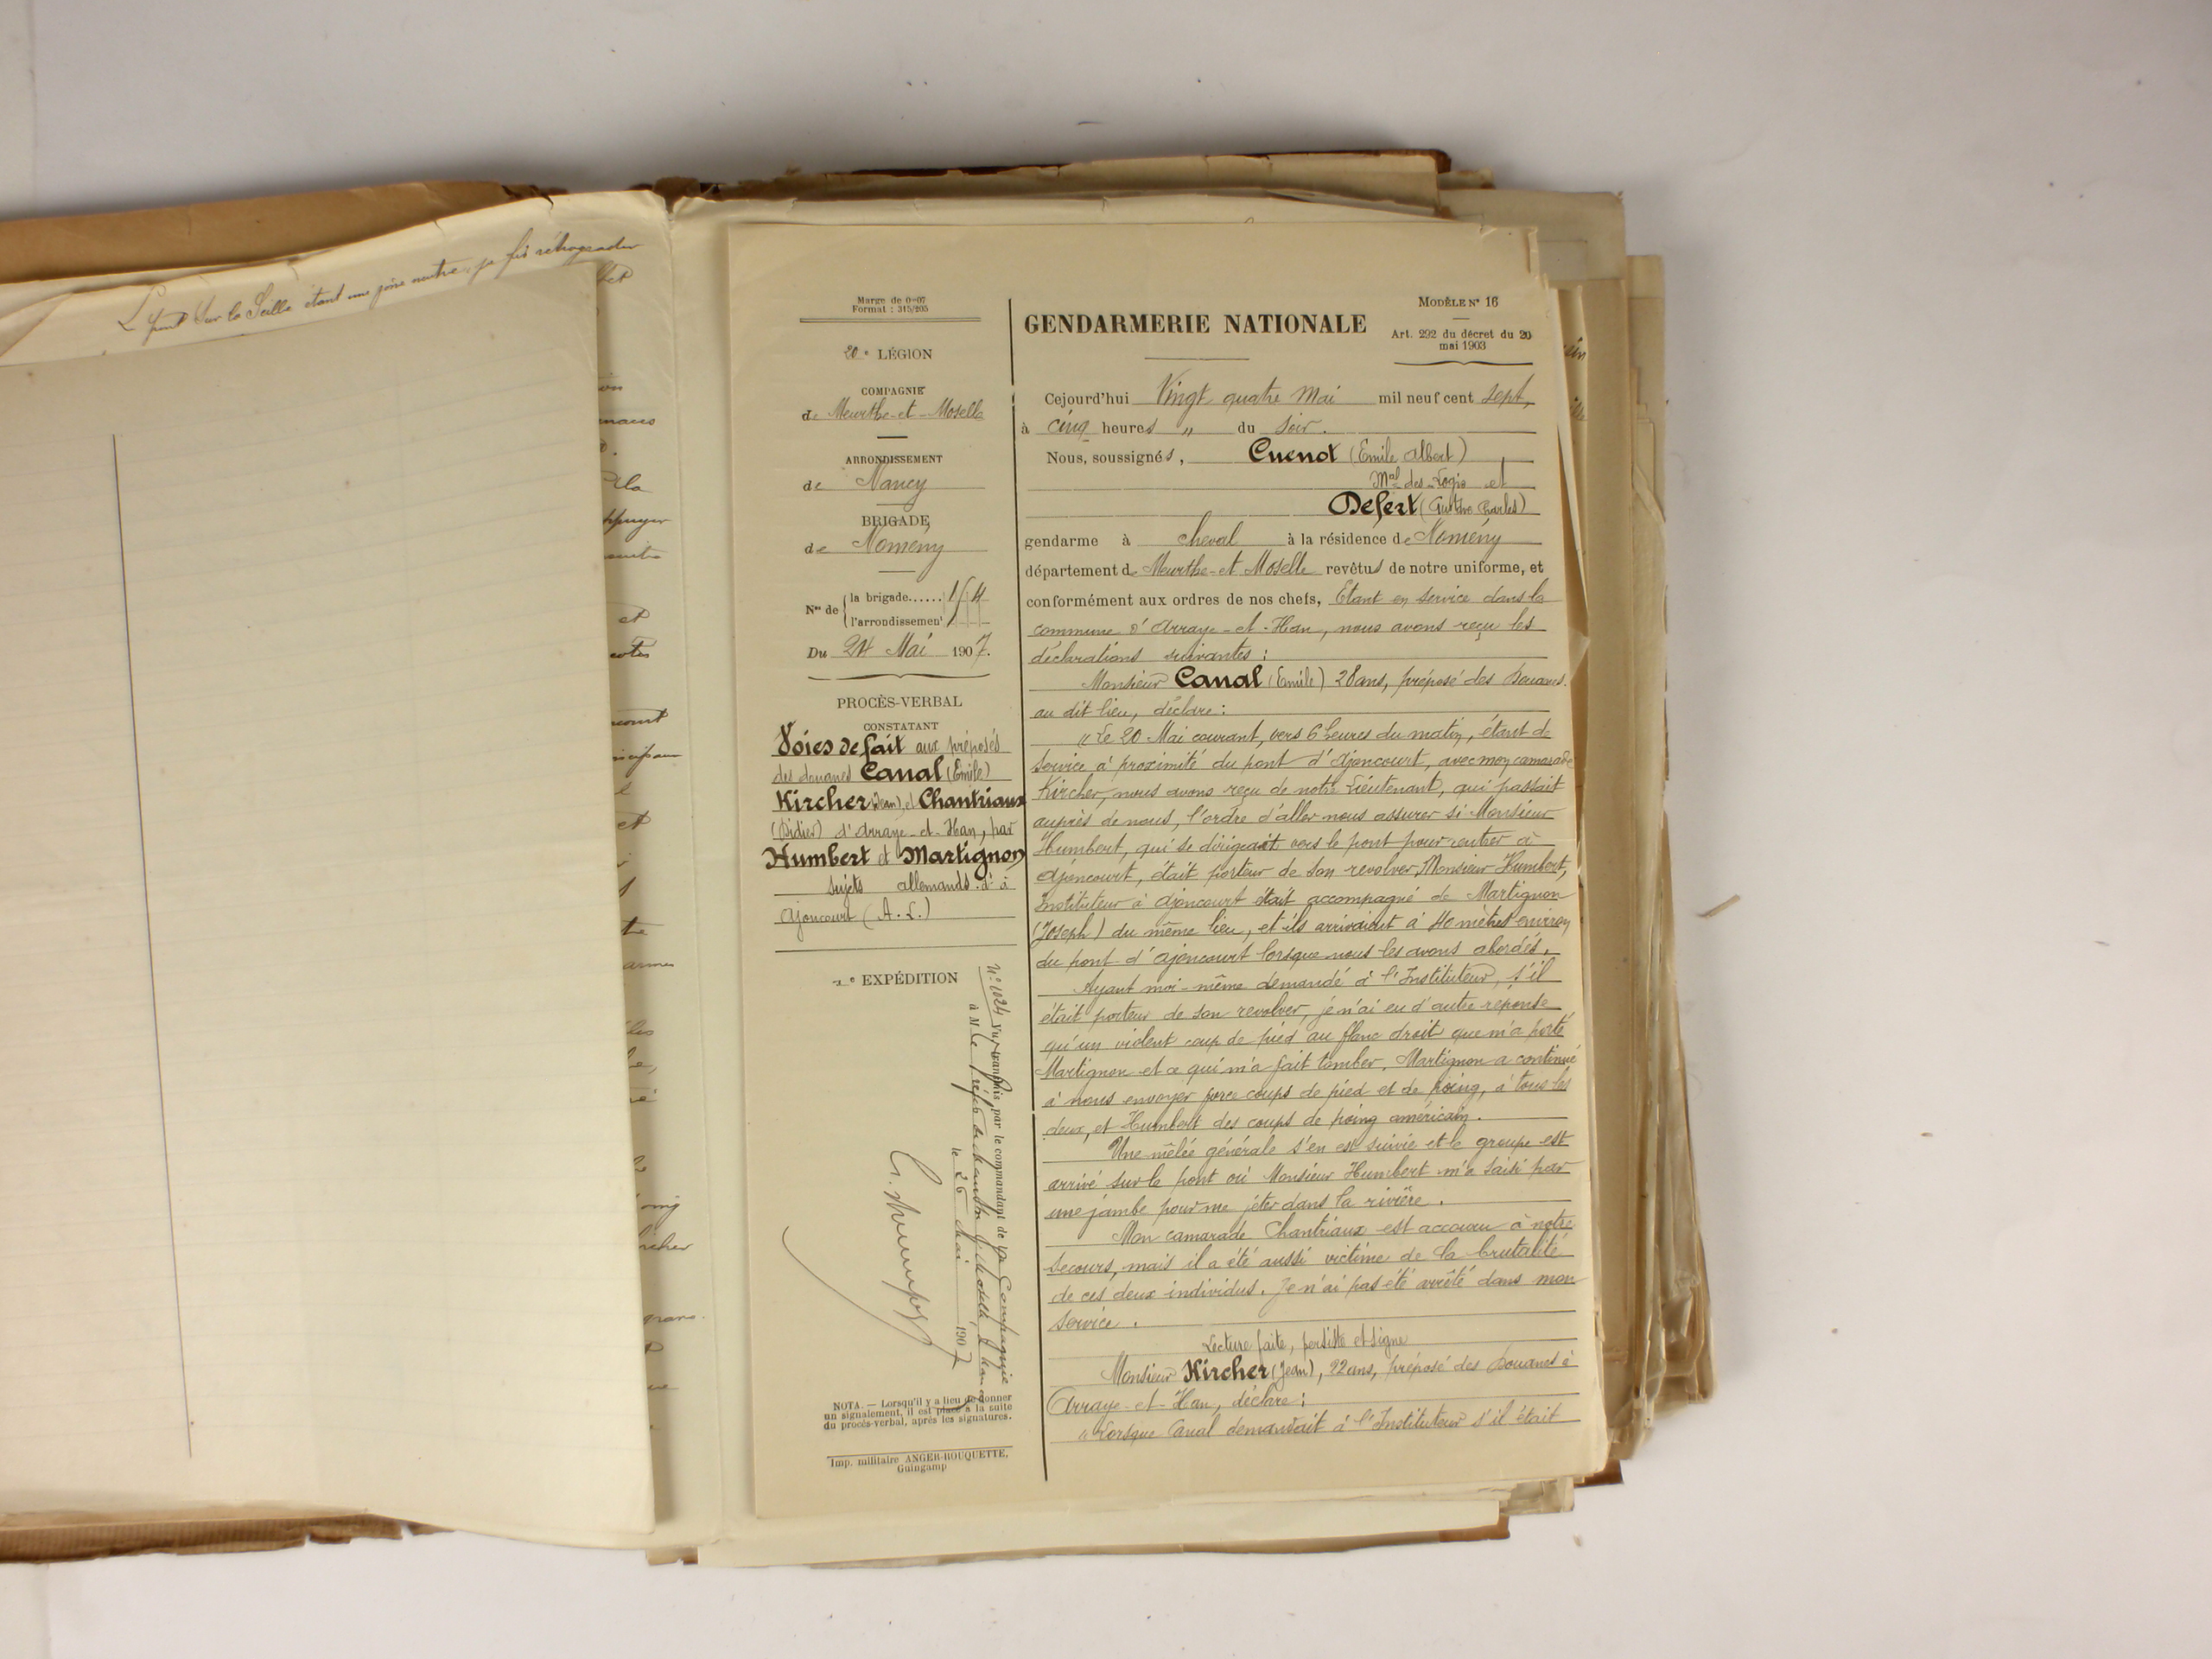 pont sur la Seille étant une zône neutre, je fis rétrograder
Marge de 0m07
Format : 315/205
20e LÉGION
COMPAGNIE
de Meurthe-et-Moselle
ARRONDISSEMENT
de Nancy
BRIGADE
de Nomény
Nos de la brigade...... 154
l'arrondissement
Du 24 Mai 1907.
PROCÈS-VERBAL
CONSTATANT
Voies de fait aux préposés
des douanes Canal (Emile)
Kircher (Jean), et Chantriaux
(Didier) d'Arraye-et-Han, par
Humbert et Martignon
sujets allemands. dt à
Ajoncourt (A.L.)
2e EXPÉDITION
No 1024 Vu et transmis par le commandant de la Compagnie
à M le Préfet de Meurthe & Moselle, à Nancy
le 26 Mai 1907
NOTA. — Lorsqu'il y a lieu de donner
un signalement, il est placé à la suite
du procès-verbal, après les signatures.
Imp. militaire ANGER-ROUQUETTE,
Guingamp
GENDARMERIE NATIONALE
MODÈLE No 16
Art. 292 du décret du 20
mai 1903
Cejourd'hui Vingt quatre Mai mil neuf cent sept,
à cinq heures " du soir.
Nous, soussignés, Cuenot (Emile Albert)
Mal des Logis et
Defert (Gustave Charles)
gendarme à cheval à la résidence de Nomény
département de Meurthe-et-Moselle revêtus de notre uniforme, et
conformément aux ordres de nos chefs, Etant en service dans la
commune d'Arraye-et-Han, nous avons reçu les
déclarations suivantes :
Monsieur Canal (Emile) 28 ans, préposé des Douanes
au dit lieu, déclare :
" Le 20 Mai courant, vers 6 heures du matin, étant de
service à proximité du pont d'Ajoncourt, avec mon camarade
Kircher, nous avons reçu de notre Lieutenant, qui passait
auprès de nous, l'ordre d'aller nous assurer si Monsieur
Humbert, qui se dirigeait vers le pont pour rentrer à
Ajoncourt, était porteur de son revolver. Monsieur Humbert,
Instituteur à Ajoncourt était accompagné de Martignon
(Joseph) du même lieu, et ils arrivaient à 40 mètres environ
du pont d'Ajoncourt lorsque nous les avons abordés.
Ayant moi-même demandé à l'Instituteur, s'il
était porteur de son revolver, je n'ai eu d'autre réponse
qu'un violent coup de pied au flanc droit que m'a porté
Martignon et ce qui m'a fait tomber. Martignon a continué
à nous envoyer force coups de pied et de poing, à tous les
deux, et Humbert des coups de poing américain.
Une mêlée générale s'en est suivie et le groupe est
arrivé sur le pont où Monsieur Humbert m'a saisi par
une jambe pour me jéter dans la rivière.
Mon camarade Chantriaux est accouru à notre
secours, mais il a été aussi victime de la brutalité
de ces deux individus. Je n'ai pas été arrêté dans mon
service.
Lecture faite, persiste et signe
Monsieur Kircher (Jean), 22 ans, préposé des Douanes à
Arraye-et-Han, déclare :
" Lorsque Canal demandait à l'Instituteur s'il était